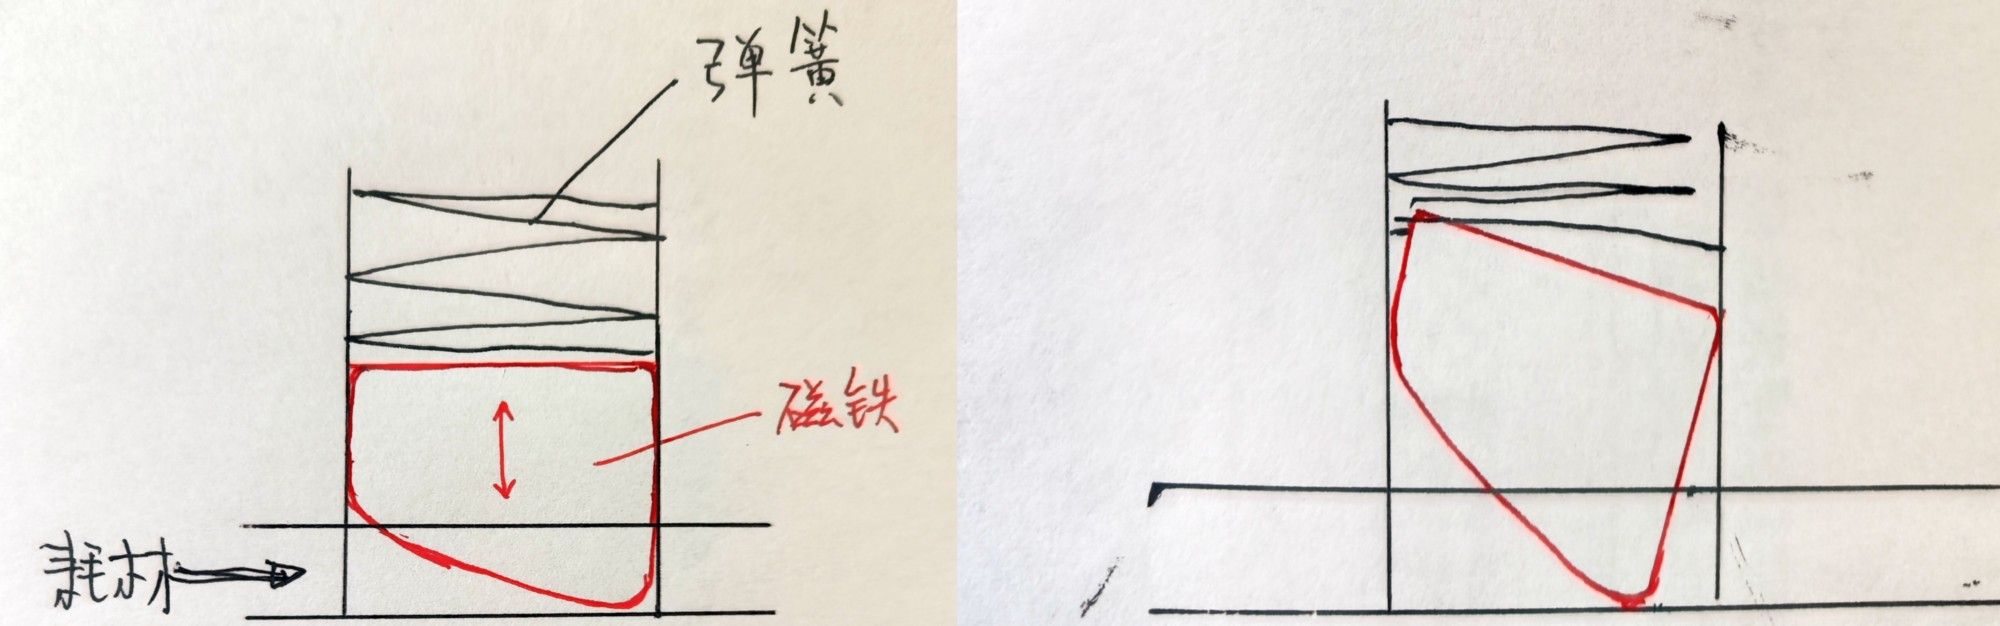 弹簧
磁铁
耗材